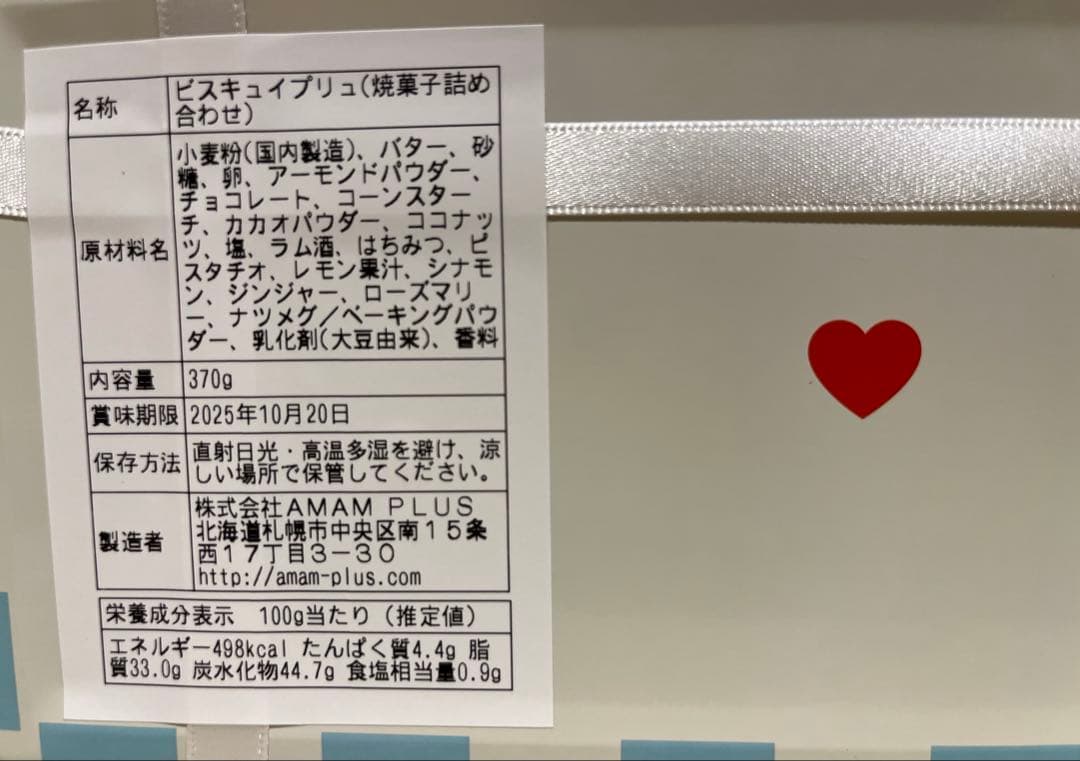 名称
ビスキュイプリュ(焼菓子詰め
合わせ)
原材料名
小麦粉(国内製造)、バター、砂
糖、卵、アーモンドパウダー、
チョコレート、コーンスター
チ、カカオパウダー、ココナッ
ツ、塩、ラム酒、はちみつ、ピ
スタチオ、レモン果汁、シナモ
ン、ジンジャー、ローズマリ
ー、ナツメグ/ベーキングパウ
ダー、乳化剤(大豆由来)、香料
内容量
370g
賞味期限
2025年10月20日
保存方法
直射日光・高温多湿を避け、涼
しい場所で保管してください。
製造者
株式会社AMAM PLUS
北海道札幌市中央区南15条
西17丁目3-30
http://amam-plus.com
栄養成分表示 100g当たり (推定値)
エネルギー498kcal たんぱく質4.4g 脂
質33.0g 炭水化物44.7g 食塩相当量0.9g